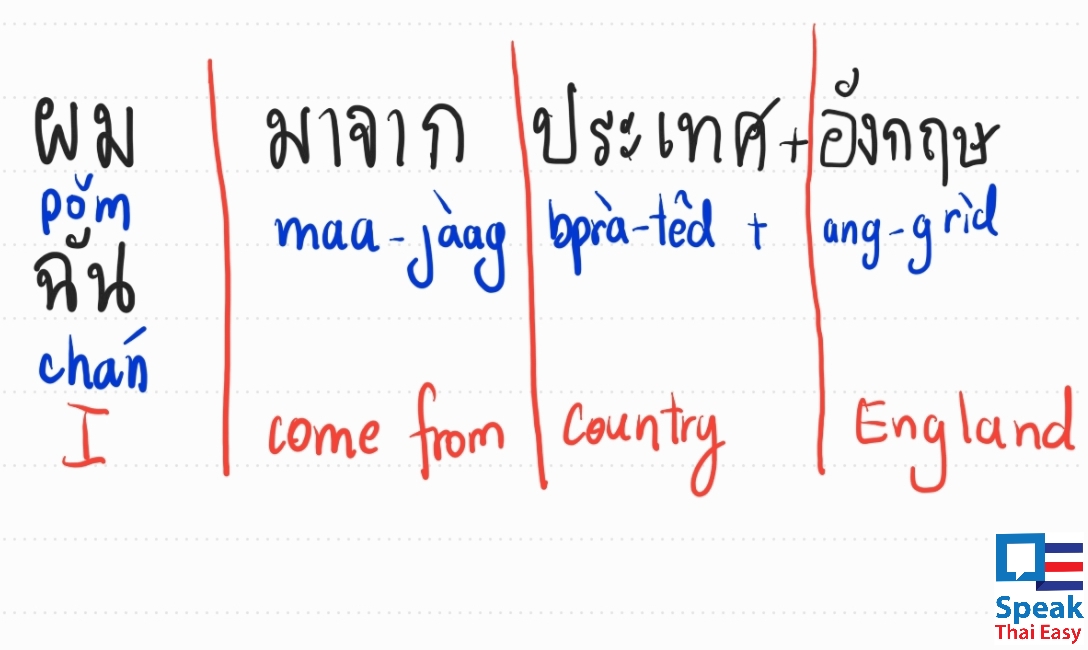 ผม มาจาก ประเทศ + อังกฤษ
pǒm maa-jàag bprà-têd + ang-grìd
ฉัน
chán
I come from Country England
Speak
Thai Easy